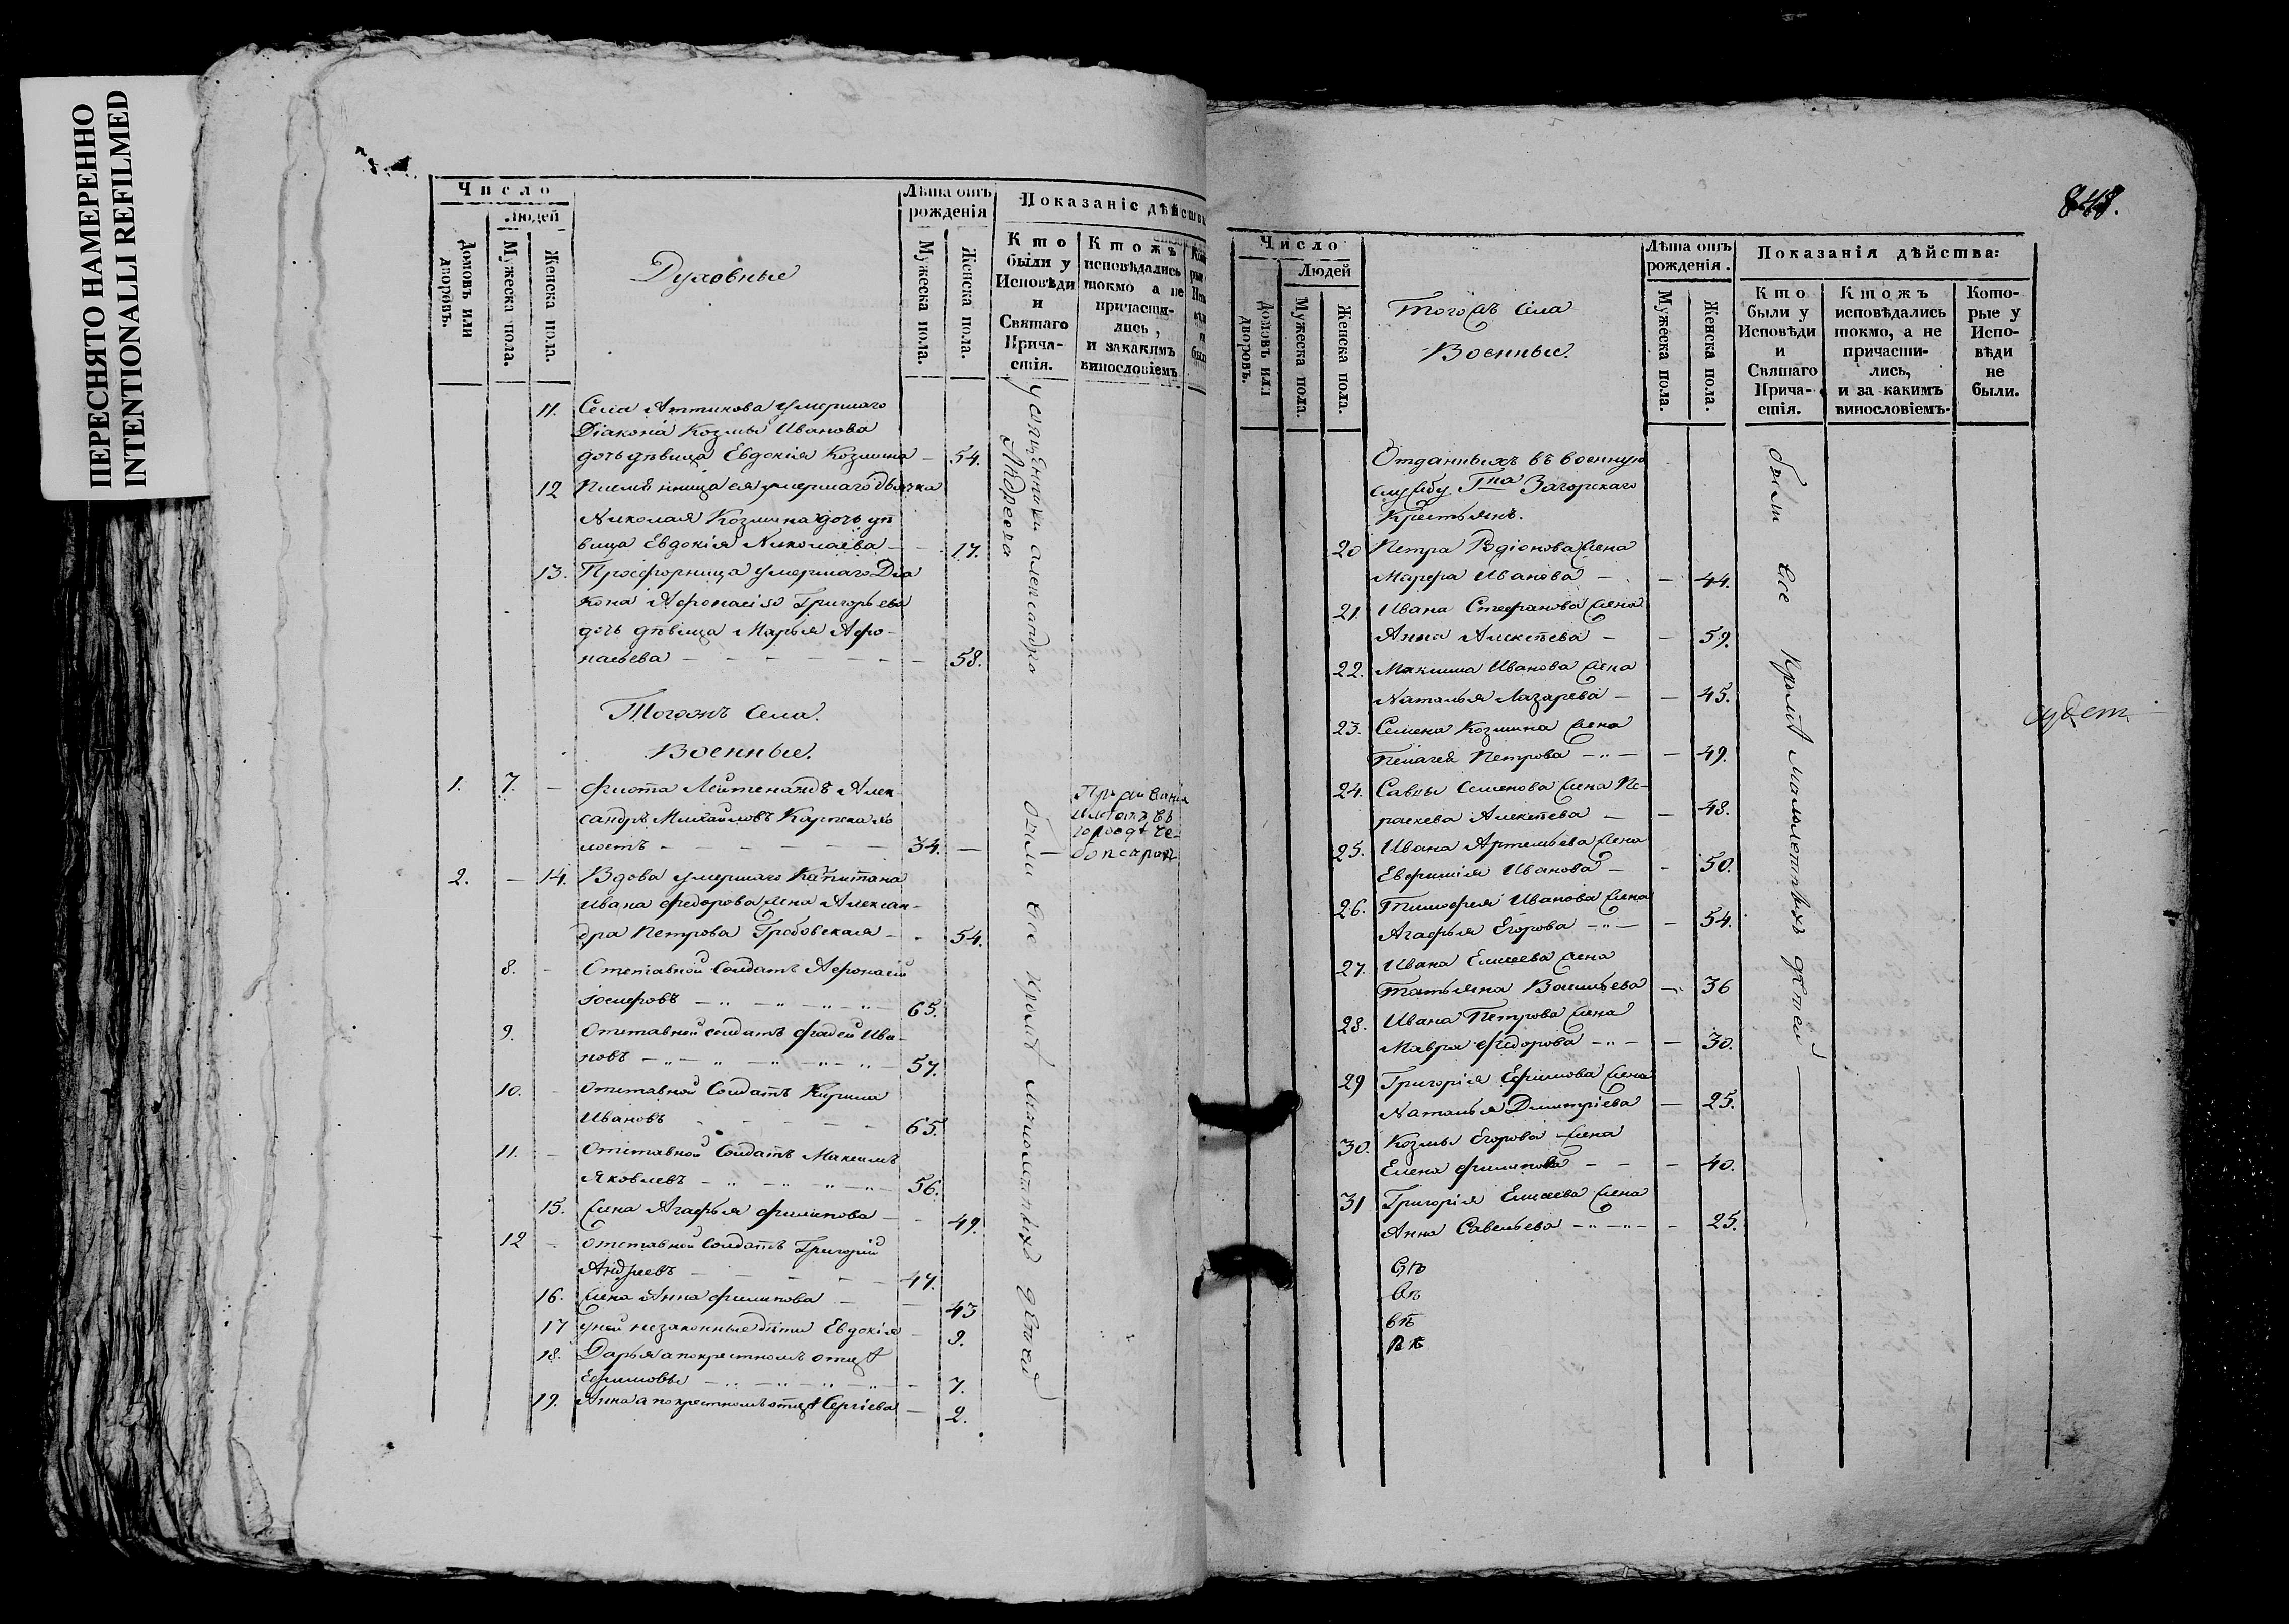 ПЕРЕСНЯТО НАМЕРЕННО
INTENTIONALLI REFILMED
Число
Людей
Домовъ или дворовъ.
Мужеска пола.
Женска пола.
Духовные
Лѣта отъ рожденія
Мужеска пола.
Женска пола.
Показаніе дѣйства
Кто были у Исповѣди и Святаго Причастія.
Ктожъ исповѣдались токмо а не причастились, и закакимъ винословіемъ
11. Села умершаго
Діакона Козмы Иванова
дочь дѣвица Евдокія Козмина — 54.
12 Племянница ея умершаго дьячка
Николая Козмина дочь дѣ
вица Евдокія Николаева — 17.
13. Просфорница умершаго Диа
кона Афонасія Григорьева
дочь дѣвица Марья Афо-
насьева — 58.
Тогожъ Села.
Военные.
1. 7. — Флота Лейтенантъ Алек
сандръ Михайловъ
34. —
2. — 14. Вдова умершаго Капитана
Ивана Федорова жена Алексан-
дра Петрова — 54.
8. — Отставной Солдатъ Афонасій
65.
9. Отставной солдатъ Фадей Ива-
новъ — 57.
10. — Отставной Солдатъ Кирила
Ивановъ — 65.
11. — Отставной Солдатъ Максимъ
Яковлевъ — 56.
15. Жена Агафья Филипова — 49.
12 — Отставной Солдатъ Григорій
Андреевъ — 47.
16. Жена Анна Филипова — 43
17 у ней незаконные дѣти Евдокія — 9.
18. Дарья а по крестномъ отцѣ
Ефимовы — 7.
19. Анна а по крестномъ отцѣ Сергіева — 2.
у священника Александра
Андреева
были все кромѣ малолѣтныхъ дѣтей
городѣ Че-
848.
Число
Людей
Домовъ или дворовъ.
Мужеска пола.
Женска пола.
Тогожъ Села
Военные.
Лѣта отъ рожденія.
Мужеска пола.
Женска пола.
Показанія дѣйства:
Кто были у Исповѣди и Святаго Причастія.
Ктожъ исповѣдались токмо, а не причастились, и за какимъ винословіемъ.
Которые у Исповѣди не были.
Отданныхъ въ военную
службу Гна Загорскаго
Крестьянъ.
20 Петра Родіонова жена
Марфа Иванова — 44.
21. Ивана Стефанова жена
Анна Алексѣева — 59.
22. Максима Иванова жена
Наталья Лазарева — 45.
23. Семена Козмина жена
Пелагея Петрова — 49.
24. Савы Семенова жена Па-
раскева Алексѣева — 48.
25. Ивана Артемьева жена
Евфимія Иванова — 50.
26. Тимофея Иванова жена
Агафья Егорова — 54.
27. Ивана Елисеева жена
Татьяна Васильева — 36
28. Ивана Петрова жена
Мавра Федорова — 30.
29 Григорія Ефимова жена
Наталья Дмитріева — 25.
30. Козмы Егорова жена
Елена Филипова — 40.
31 Григорія Елисеева жена
Анна Савельева — 25.
были все кромѣ малолѣтныхъ дѣтей